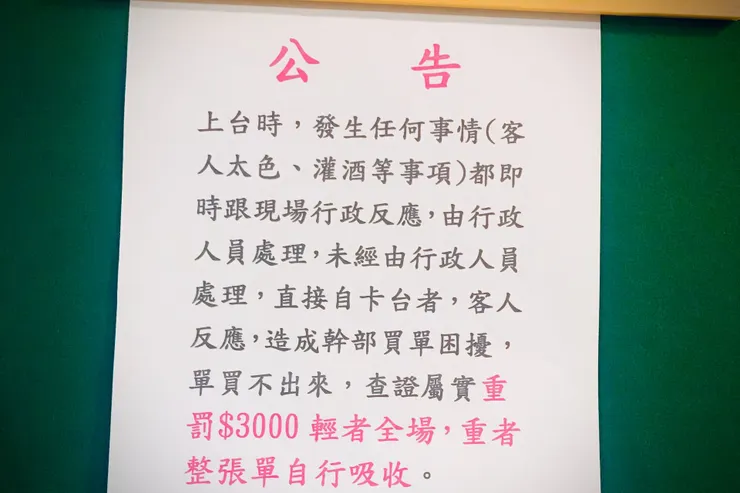 公 告
上台時，發生任何事情(客
人太色、灌酒等事項)都即
時跟現場行政反應，由行政
人員處理，未經由行政人員
處理，直接自卡台者，客人
反應，造成幹部買單困擾，
單買不出來，查證屬實重
罰$3000 輕者全場，重者
整張單自行吸收。